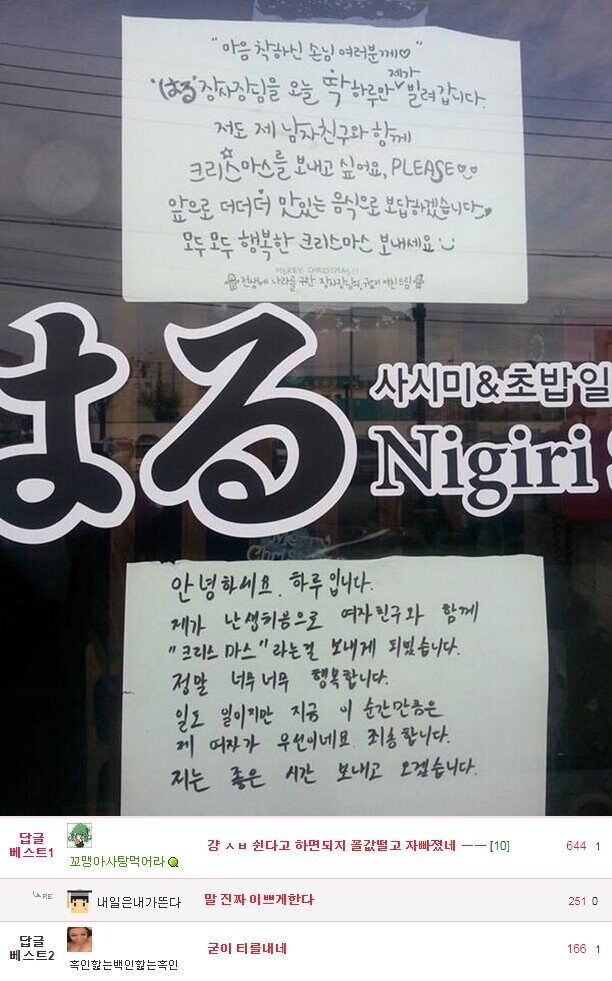 "마음 착하신 손님 여러분께♡"
'はる' 장사장님을 오늘 딱 하루만 제가 빌려 갑니다.
저도 제 남자친구와 함께
크리스마스를 보내고 싶어요, PLEASE♡♡
앞으로 더더더 맛있는 음식으로 보답하겠습니다
모두모두 행복한 크리스마스 보내세요
MERRY CHRISTMAS!!
전생에 나라를 구한 장사장님의, 여친드림
はる
사시미&초밥일
Nigiri
안녕하세요. 하루입니다.
제가 난생처음으로 여자친구와 함께
"크리스마스"라는걸 보내게 되었습니다.
정말 너무너무 행복합니다.
일도 일이지만 지금 이 순간만큼은
제 여자가 우선이네요. 죄송합니다.
저는 좋은 시간 보내고 오겠습니다.
답글
베스트1
꼬맹아사탕먹어라
걍 ㅅㅂ 쉰다고 하면되지 꼴값떨고 자빠졌네 ㅡㅡ [10]
644 1
RE
내일은내가뜬다
말 진짜 이쁘게한다
251 0
답글
베스트2
흑인핥는백인핥는흑인
굳이 티를내네
166 1